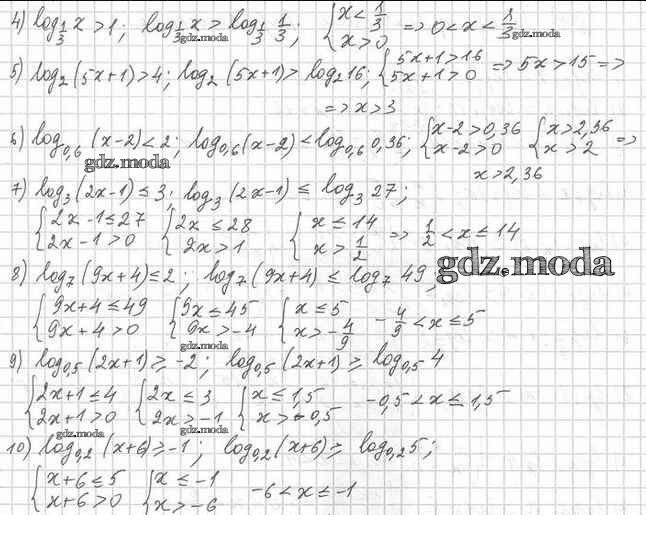 4) log_{1/3} x > 1; log_{1/3} x > log_{1/3} 1/3; { x < 1/3 x > 0 => 0 < x < 1/3
gdz.moda gdz.moda
5) log_2 (5x+1) > 4; log_2 (5x+1) > log_2 16; { 5x+1 > 16 5x+1 > 0 => 5x > 15 =>
=> x > 3
6) log_{0,6} (x-2) < 2; log_{0,6} (x-2) < log_{0,6} 0,36; { x-2 > 0,36 x-2 > 0 { x > 2,36 x > 2 =>
gdz.moda
x > 2,36
7) log_3 (2x-1) ≤ 3; log_3 (2x-1) ≤ log_3 27;
{ 2x-1 ≤ 27 2x-1 > 0 { 2x ≤ 28 2x > 1 { x ≤ 14 x > 1/2 => 1/2 < x ≤ 14
gdz.moda
8) log_7 (9x+4) ≤ 2; log_7 (9x+4) ≤ log_7 49;
{ 9x+4 ≤ 49 9x+4 > 0 { 9x ≤ 45 9x > -4 { x ≤ 5 x > -4/9 -4/9 < x ≤ 5
gdz.moda
9) log_{0,5} (2x+1) ≥ -2; log_{0,5} (2x+1) ≥ log_{0,5} 4
{ 2x+1 ≤ 4 2x+1 > 0 { 2x ≤ 3 2x > -1 { x ≤ 1,5 x > -0,5 -0,5 < x ≤ 1,5
gdz.moda gdz.moda
10) log_{0,2} (x+6) ≥ -1; log_{0,2} (x+6) ≥ log_{0,2} 5;
{ x+6 ≤ 5 x+6 > 0 { x ≤ -1 x > -6 -6 < x ≤ -1